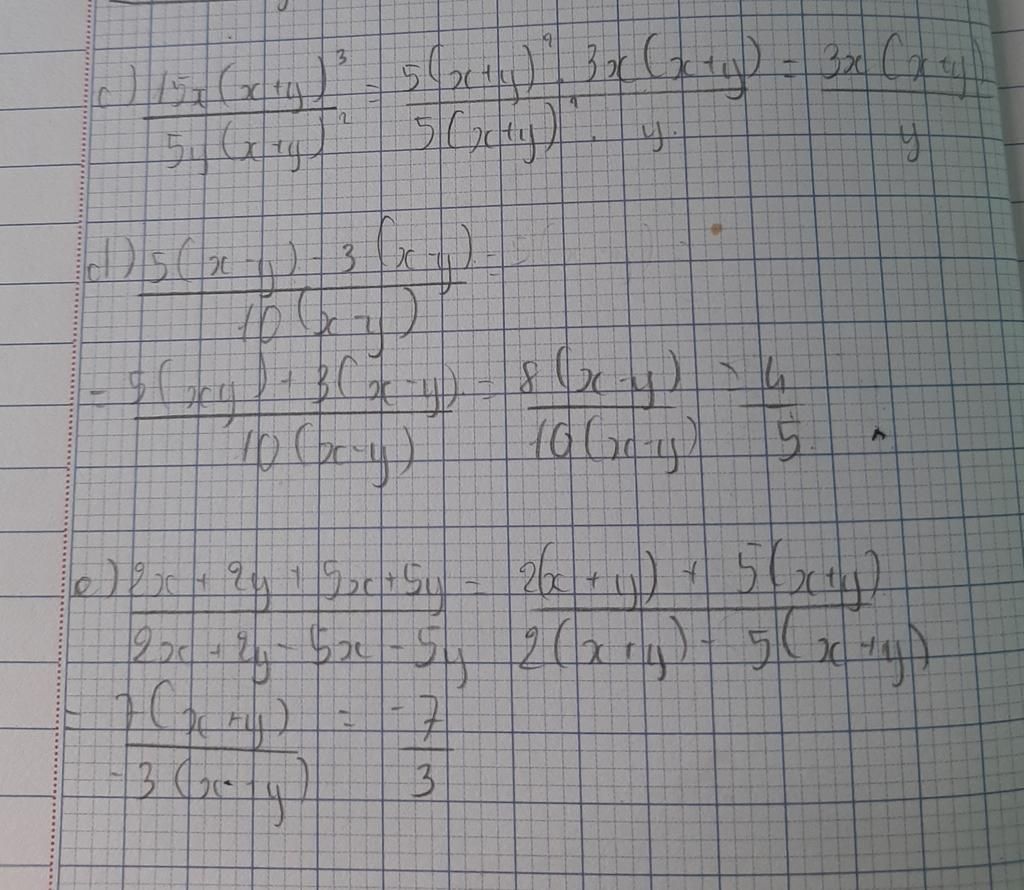 c) 15x(x+y)³ / 5y(x+y)² = 5(x+y)² . 3x(x+y) / 5(x+y)² . y = 3x(x+y) / y
d) 5(x-y) - 3(x-y) / 10(x-y) =
= 5(x-y) + 3(x-y) / 10(x-y) = 8(x-y) / 10(x-y) = 4 / 5
e) 2x + 2y + 5x + 5y / 2x + 2y - 5x - 5y = 2(x+y) + 5(x+y) / 2(x+y) - 5(x+y)
= 7(x+y) / -3(x+y) = -7 / 3